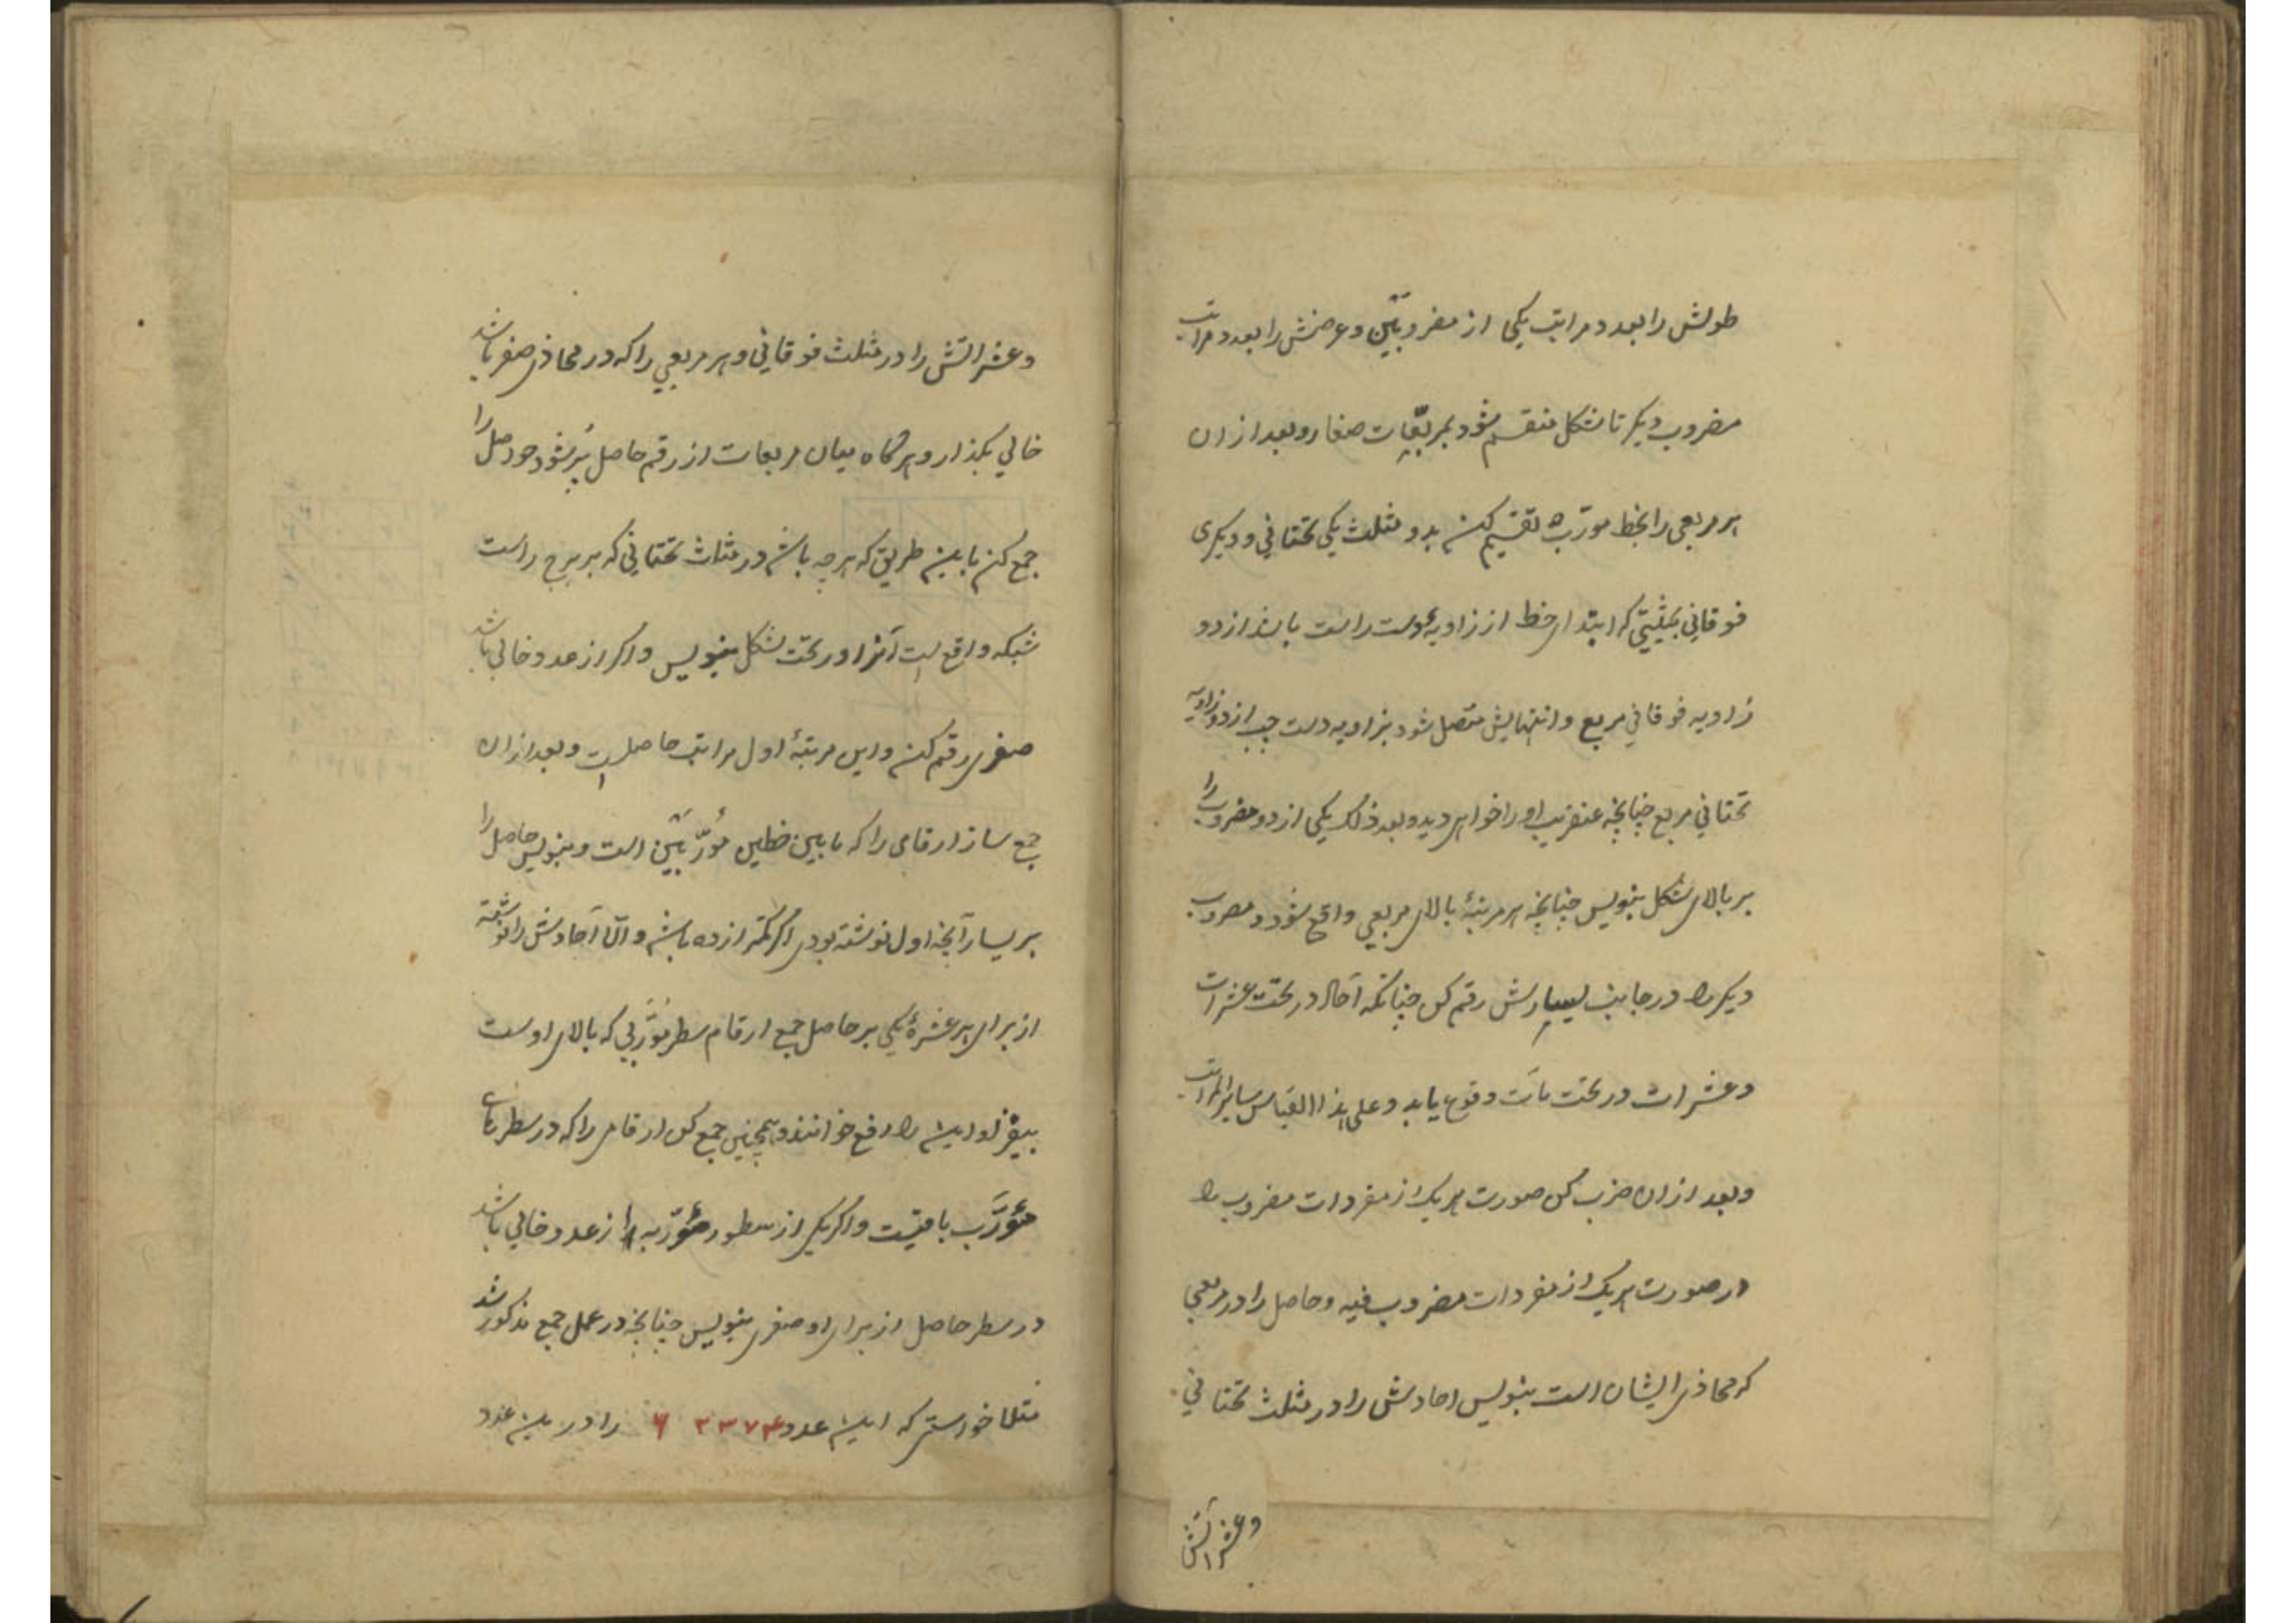 طولش را بعدد مراتب یکی از مضروبَیْن و عرضش را بعدد مراتب
مضروب دیگر تا شکل منقسم شود بمربّعات صغار و بعد از ان
هر مربعی را بخط مورّب تقسیم کن بدو مثلث یکی تحتانی و دیگری
فوقانی بحیثیتی که ابتدای خط از زاویهٔ دست راست باشد از دو
زاویه فوقانی مربع و انتهایش متصل شود بزاویه دست چپ از دو زاویه
تحتانی مربع چنانچه عنقریب او را خواهی دید و بعد ذلک یکی از دو مضروب را
بر بالای شکل بنویس چنانچه هر مرتبهٔ بالای مربعی واقع شود و مضروب
دیگر را در جانب یسارش رقم کن چنانکه آحاد در تحت عشرات
و عشرات در تحت مآت وقوع یابد و علی هذا القیاس سایر المراتب
و بعد از ان ضرب کن صورت هر یک از مفردات مضروب را
در صورت هر یک از مفردات مضروب فیه و حاصل را در مربعی
که محاذی ایشان است بنویس احادش را در مثلث تحتانی
وعشراتش
وعشراتش را در مثلث فوقانی و هر مربعی را که در محاذی صفر باشد
خالی بگذار و هرگاه میان مربعات از رقم حاصل پُر شود حواصل را
جمع کن باین طریق که هر چه باشد در مثلث تحتانی که بر یرج راست
شبکه واقع است آنرا در تحت شکل بنویس و اگر از عدد خالی باشد
صفری رقم کن و این مرتبهٔ اول مراتب حاصل است و بعد از ان
جمع ساز ارقامی را که ما بین خطین مُورّبَیْن است و بنویس حاصل را
بر یسار آنچه اول نوشته بودی اگر کمتر از ده باشد و الّا آحادش را نوشته
از برای هر عشرهٔ یکی بر حاصل جمع ارقام سطر مُورَّبی که بالای اوست
بیفزا و این را رفع خوانند و همچنین جمع کن ارقامی را که در سطرهای
مُورَّب باقیست و اگر یکی از سطور مُورّبه از عدد خالی باشد
در سطر حاصل از برای او صفری بنویس چنانچه در عمل جمع مذکور شد
مثلا خواستی که این عدد ۶۲۳۷۴ را در این عدد